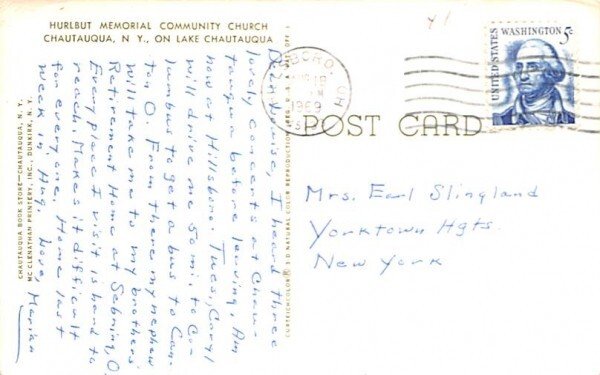 HURLBUT MEMORIAL COMMUNITY CHURCH
CHAUTAUQUA, N. Y., ON LAKE CHAUTAUQUA
Dear Louise, I heard three
lovely concerts at Chau-
tauqua before leaving. Am
now at Hillsboro. Tues., Caryl
will drive me 50 mi. to Co-
lumbus to get a bus to Can-
ton O. From there my nephew
will take me to my brothers'
Retirement Home at Sebring, O.
Every place I visit is hard to
reach. Makes it difficult
for everyone. Home last
week in Aug. Love, Marian
CHAUTAUQUA BOOK STORE—CHAUTAUQUA, N. Y.
MC CLENATHAN PRINTERY, INC., DUNKIRK, N. Y.
CURTEICHCOLOR® 3-D NATURAL COLOR REPRODUCTION
41
BORO
OHIO
1969
UNITED STATES
WASHINGTON 5c
POST CARD
Mrs. Earl Slingland
Yorktown Hgts.
New York